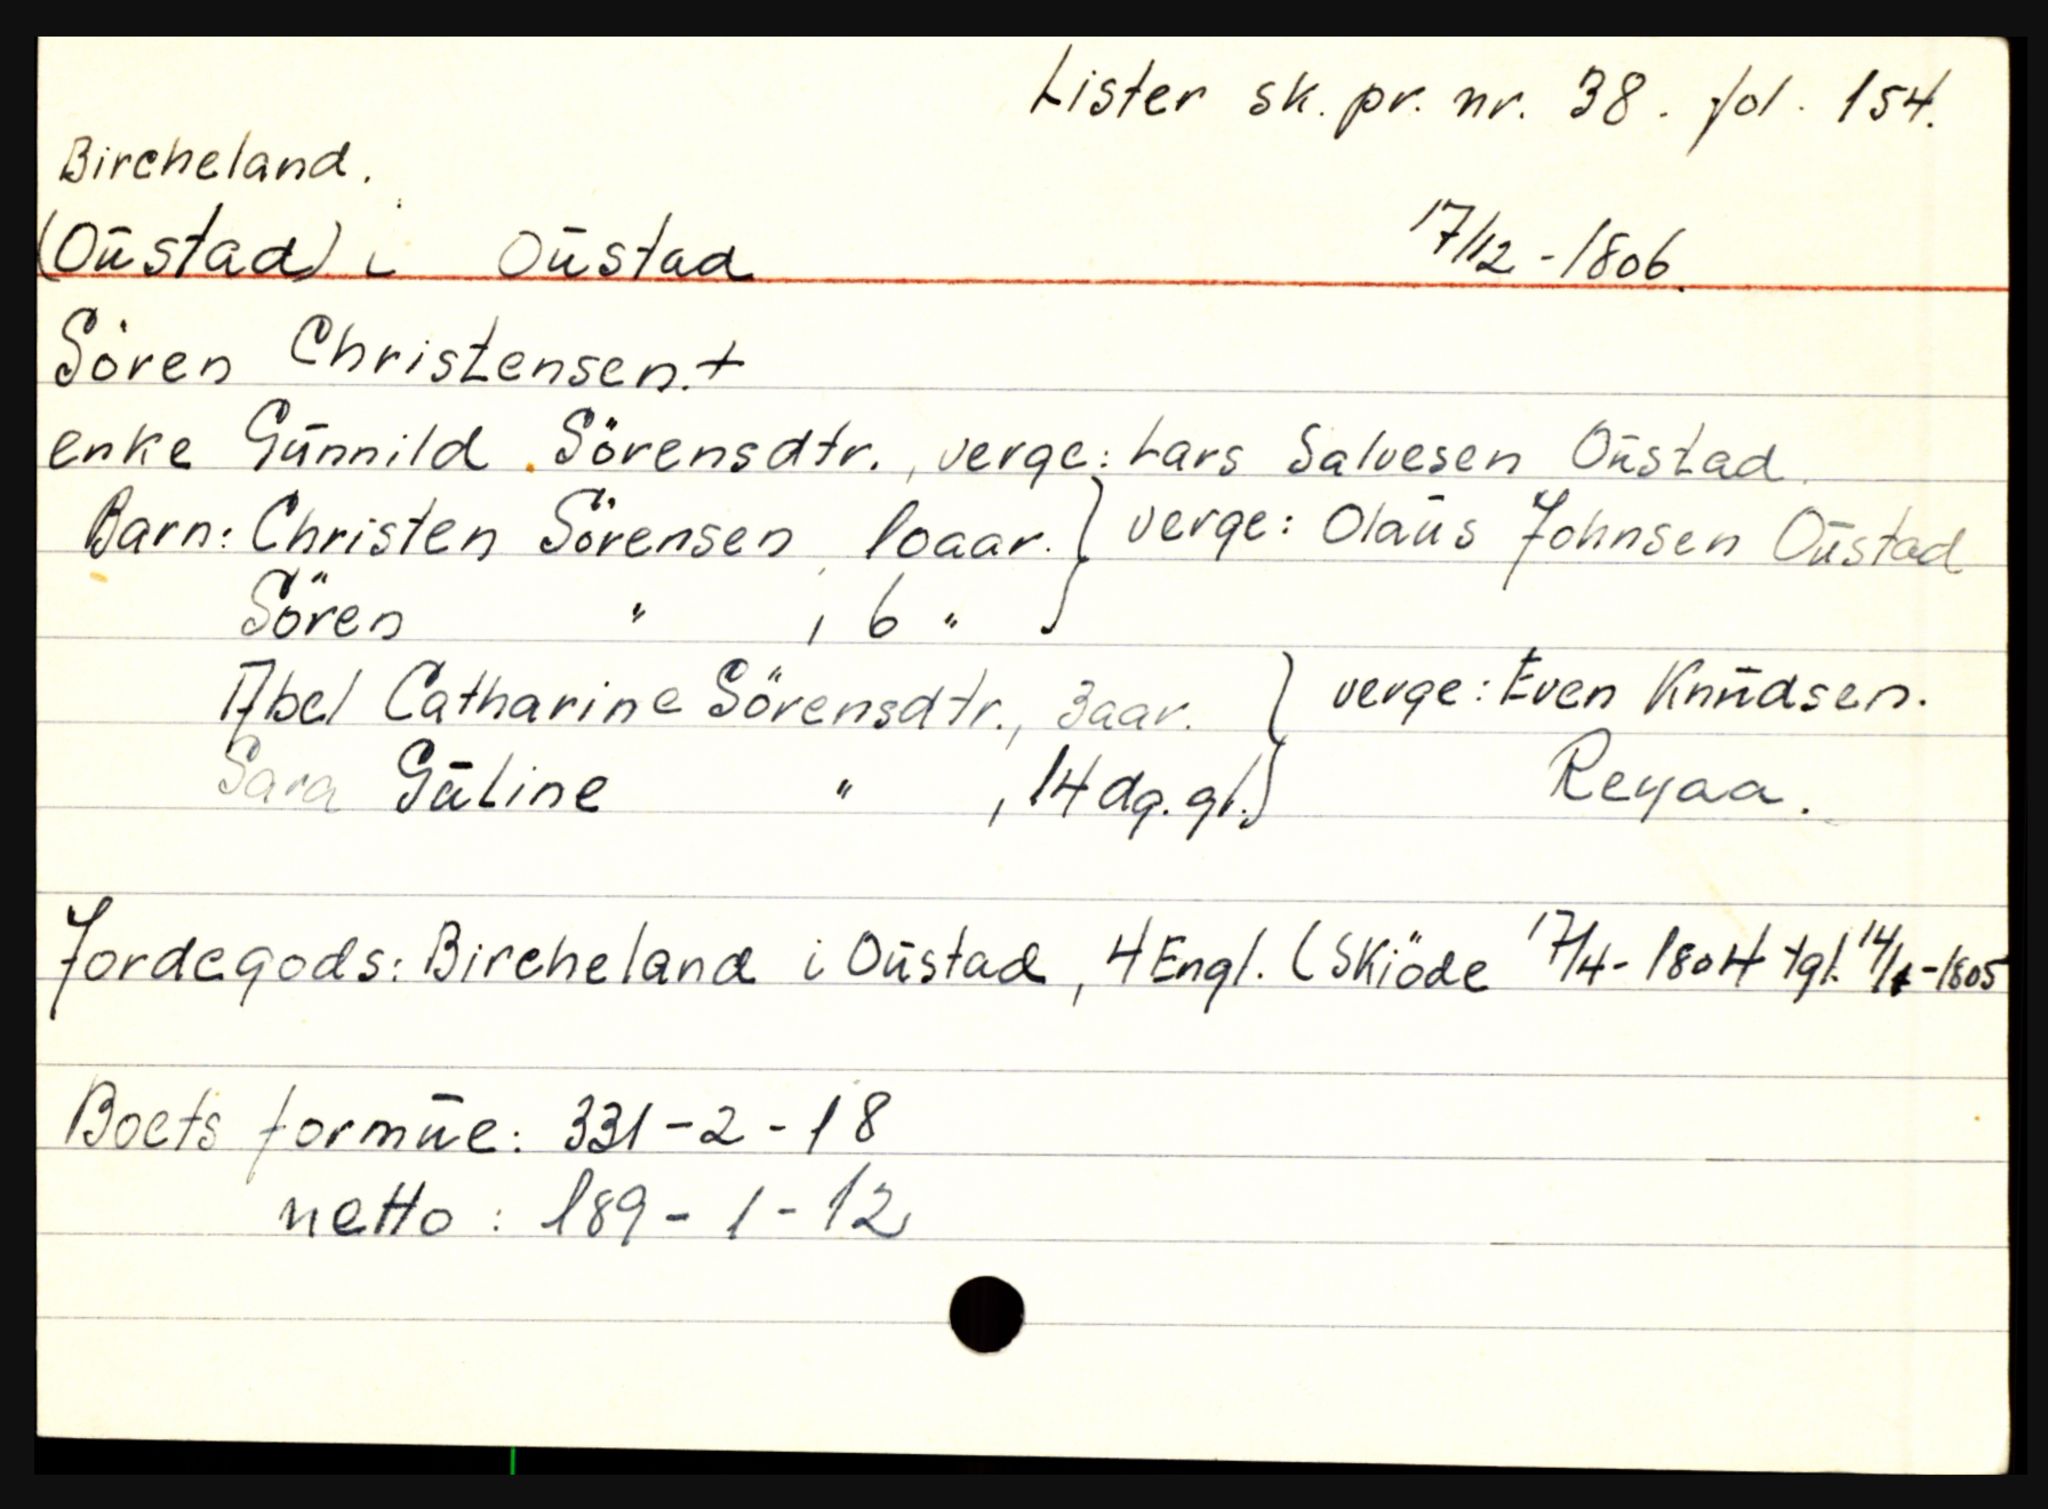 Lister sk. pr. nr. 38. fol. 154.
Bircheland.
(Oūstad) i Oūstad 17/12 - 1806.
Sören Christensen. +
enke Gūnnild Sörensdtr., verge: Lars Salvesen Oūstad.
Barn: Christen Sörensen, 10aar. } verge: Olaūs Johnsen Oūstad
Sören " , 6 " }
Abel Catharine Sörensdtr., 3aar. } verge: Even Knūdsen.
Sara Gūline " , 14 dg. gl. } Reyaa.
Jordegods: Bircheland i Oūstad, 4 Engl. (Skiöde 17/4 - 1804 tgl. 14/1 - 1805
Boets formūe: 331 - 2 - 18
netto: 189 - 1 - 12